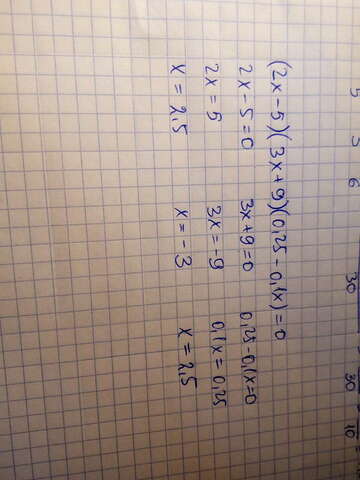 5 5 6 30 30 10
(2x-5)(3x+9)(0,25-0,1x)=0
2x-5=0 3x+9=0 0,25-0,1x=0
2x=5 3x=-9 0,1x=0,25
x=2,5 x=-3 x=2,5